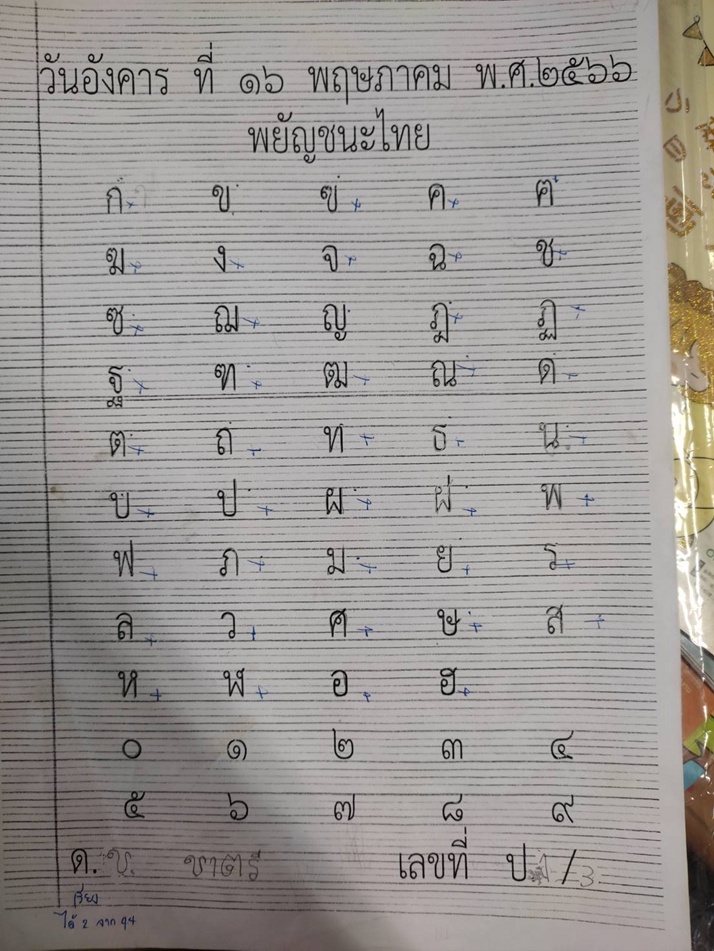 วันอังคาร ที่ ๑๖ พฤษภาคม พ.ศ.๒๕๖๖
พยัญชนะไทย
ก ข ฃ ค ฅ
ฆ ง จ ฉ ช
ซ ฌ ญ ฎ ฏ
ฐ ฑ ฒ ณ ด
ต ถ ท ธ น
บ ป ผ ฝ พ
ฟ ภ ม ย ร
ล ว ศ ษ ส
ห ฬ อ ฮ
๐ ๑ ๒ ๓ ๔
๕ ๖ ๗ ๘ ๙
ด.ช. ชาตรี เลขที่ ป.1/3
ได้ 2 จาก 44